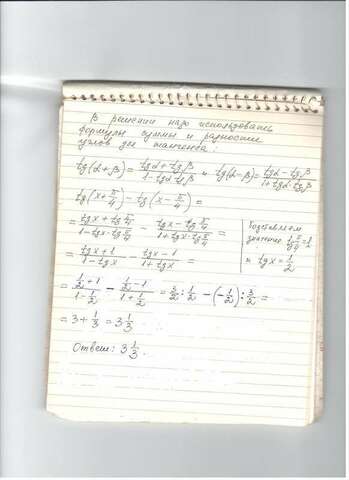 В решении надо использовать
формулы суммы и разности
углов для тангенса:
tg(α+β) = (tgα+tgβ)/(1-tgα·tgβ) и tg(α-β) = (tgα-tgβ)/(1+tgα·tgβ)
tg(x+π/4) - tg(x-π/4) =
= (tgx+tgπ/4)/(1-tgx·tgπ/4) - (tgx-tgπ/4)/(1+tgx·tgπ/4) =
= (tgx+1)/(1-tgx) - (tgx-1)/(1+tgx) =
Подставляем
значение tgπ/4=1
и tgx=1/2
= (1/2+1)/(1-1/2) - (1/2-1)/(1+1/2) = 3/2 : 1/2 - (-1/2) : 3/2 =
= 3 + 1/3 = 3 1/3
Ответ: 3 1/3.